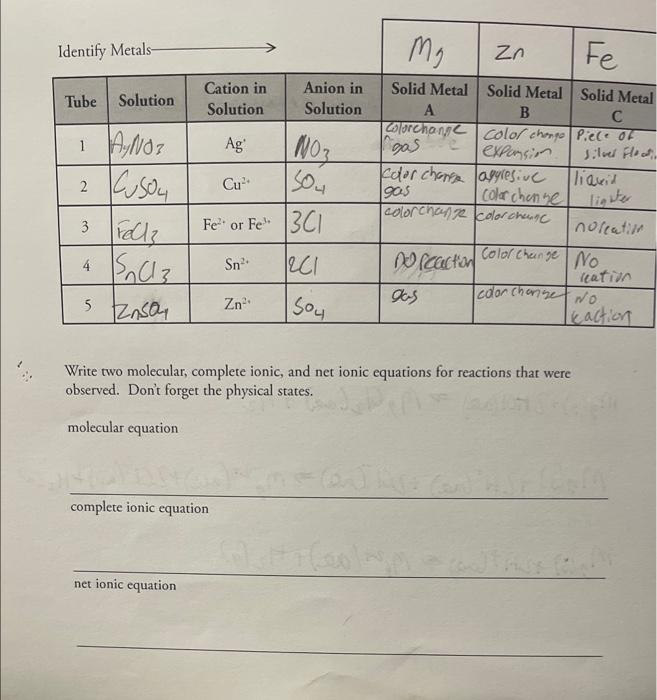 Mg Zn Fe
Identify Metals
Tube Solution Cation in Solution Anion in Solution Solid Metal A Solid Metal B Solid Metal C
1 AgNO3 Ag+ NO3 Colorchange gas color change expension Piece of silver
2 CuSO4 Cu2+ SO4 Color change gas aggresive color change liquid lighter
3 FeCl3 Fe2+ or Fe3+ 3Cl color change colorchange noreation
4 SnCl3 Sn2+ 2Cl no reaction Color change No reation
5 ZnSO4 Zn2+ SO4 gas color change No eaction
Write two molecular, complete ionic, and net ionic equations for reactions that were
observed. Don't forget the physical states.
molecular equation
complete ionic equation
net ionic equation